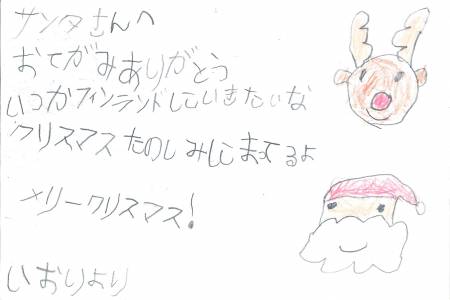 サンタさんへ
おてがみありがとう
いつかフィンランドにいきたいな
クリスマスたのしみにまってるよ
メリークリスマス!
いおりより